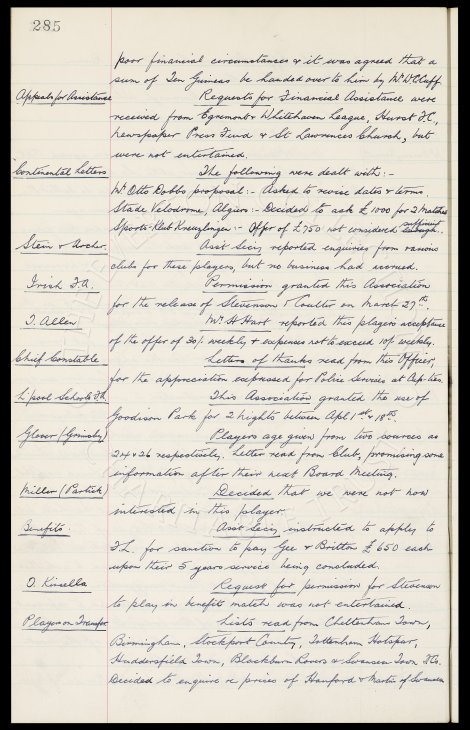 285
poor financial circumstances & it was agreed that a
sum of Ten Guineas be handed over to him by Mr W C Cuff.
Appeals for Assistance Requests for Financial Assistance were
received from Egremont & Whitehaven League, Hurst F.C.,
Newspaper Press Fund & St Lawrences Church, but
were not entertained.
Continental Letters The following were dealt with:-
Mr Otto Dobbs proposal:- Asked to revise dates & terms
Stade Velodrome, Algiers:- Decided to ask £1000 for 2 Matches
Sports-Klub Kreuzlingen:- Offer of £750 not considered sufficient.
Stein & Archer. Asst Secy reported enquiries from various
clubs for these players, but no business had accrued.
Irish F.A. Permission granted this Association
for the release of Stevenson & Coulter on March 27th.
T. Allen Mr H Hart reported this players acceptance
of the offer of 30/- weekly & expenses not to exceed 10/- weekly.
Chief Constable Letters of thanks read from this Officer,
for the appreciation expressed for Police Services at Cup-ties.
L'pool Schools F.A. This Association granted the use of
Goodison Park for 2 nights between Apl 1st & 18th.
Glover (Grimsby) Players age given from two sources as
24 & 26 respectively. Letter read from Club, promising some
information after their next Board Meeting.
Miller (Partick) Decided that we were not now
interested in this player.
Benefits Asst Secy instructed to apply to
F.L. for sanction to pay Gee & Britton £650 each
upon their 5 years service being concluded.
T. Kinsella Request for permission for Stevenson
to play in benefit match was not entertained.
Players on Transfer Lists read from Cheltenham Town,
Birmingham, Stockport County, Tottenham Hotspur,
Huddersfield Town, Blackburn Rovers & Swansea Town F.Cs.
Decided to enquire re prices of Hanford & Martin of Swansea